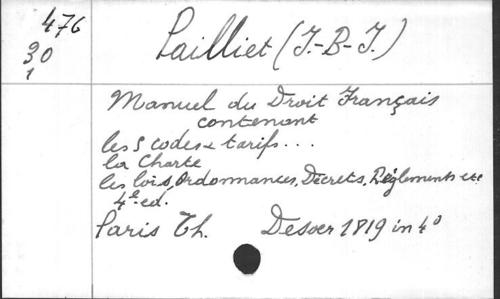 476
30
1
Pailliet (J.-B-J.)
Manuel du Droit Français
contenant
les 5 codes & tarifs...
la Charte
les lois, Ordonnances, Décrets, Réglements etc
4e ed.
Paris Th. Desoer 1819 in 4°